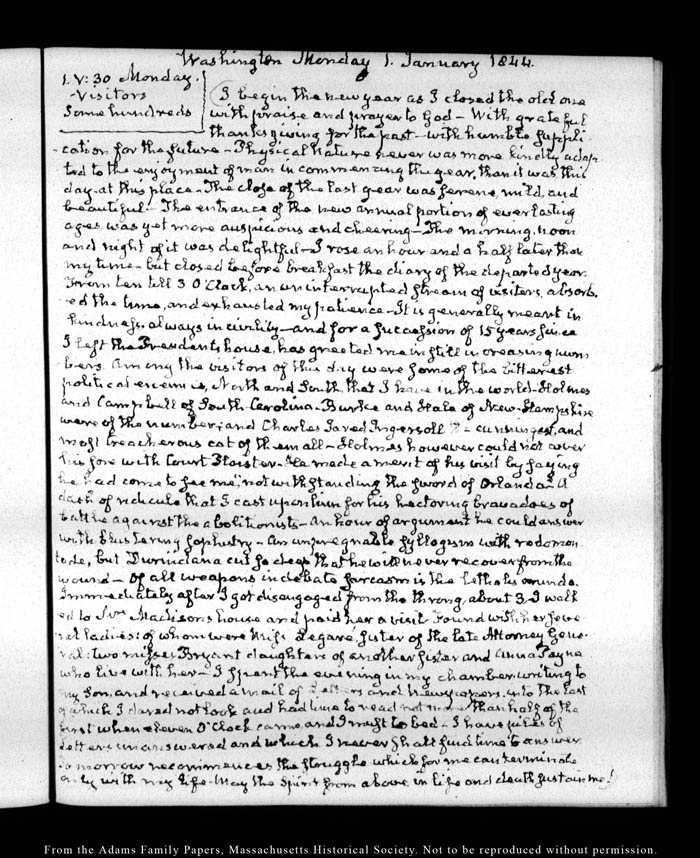 Washington Monday 1. January 1844.
1. V:30 Monday.
-Visitors
Some hundreds
I begin the new year as I closed the old one
with praise and prayer to God - With grateful
thanksgiving for the past - with humble suppli-
cation for the future - Physical Nature never was more kindly adap-
ted to the enjoyment of man in commencing the year, than it was this
day at this place - The close of the last year was serene, mild, and
beautiful - The entrance of the new annual portion of everlasting
ages, was yet more auspicious and cheering - The morning, noon
and night of it was delightful - I rose an hour and a half later than
my time - but closed before breakfast the diary of the departed year.
From ten till 3 O'Clock, an uninterrupted stream of visitors, absorb-
ed the time, and exhausted my patience - It is generally meant in
kindness, always in civility - and for a succession of 15 years since
I left the President's house, has greeted me in still increasing num
bers. Among the visitors of this day were some of the bitterest
political enemies, North and South, that I have in the world - Holmes
and Campbell of South-Carolina - Burke and Hale of New-Hampshire
were of the number; and Charles Jared Ingersoll cunningest, and
most treacherous cat of them all - Holmes however could not cover
his sore with Court Plaister - He made a merit of his visit by saying
he had come to see me, notwithstanding the sword of Orlando - A
dash of ridicule that I cast upon him for his hectoring bravadoes of
battle against the abolitionists - An hour of argument he could answer
with blustering sophistry - An unpregnable syllogism with rodomon
tade, but Durindana cut so deep that he will never recover from the
wound - Of all weapons in debate sarcasm is the lethalis arundo.
Immediately after I got disengaged from the throng, about 3, I walk
ed to Mrs Madison's house and paid her a visit - Found with her seve-
ral ladies: of whom were Miss Legaré, sister of the late Attorney Gene-
ral: two misses Bryant daughters of another sister and Anna Payne
who live with her - I spent the evening in my chamber, writing to
my Son, and received a mail of Letters and newspapers, into the last
of which I dared not look and had time to read not more than half of the
first when eleven O'Clock came and I must to bed - I have piles of
Letters unanswered and which I never shall find time to answer
tomorrow recommences the struggle which for me can terminate
only with my life - May the Spirit from above in life and death sustain me!
From the Adams Family Papers, Massachusetts Historical Society. Not to be reproduced without permission.